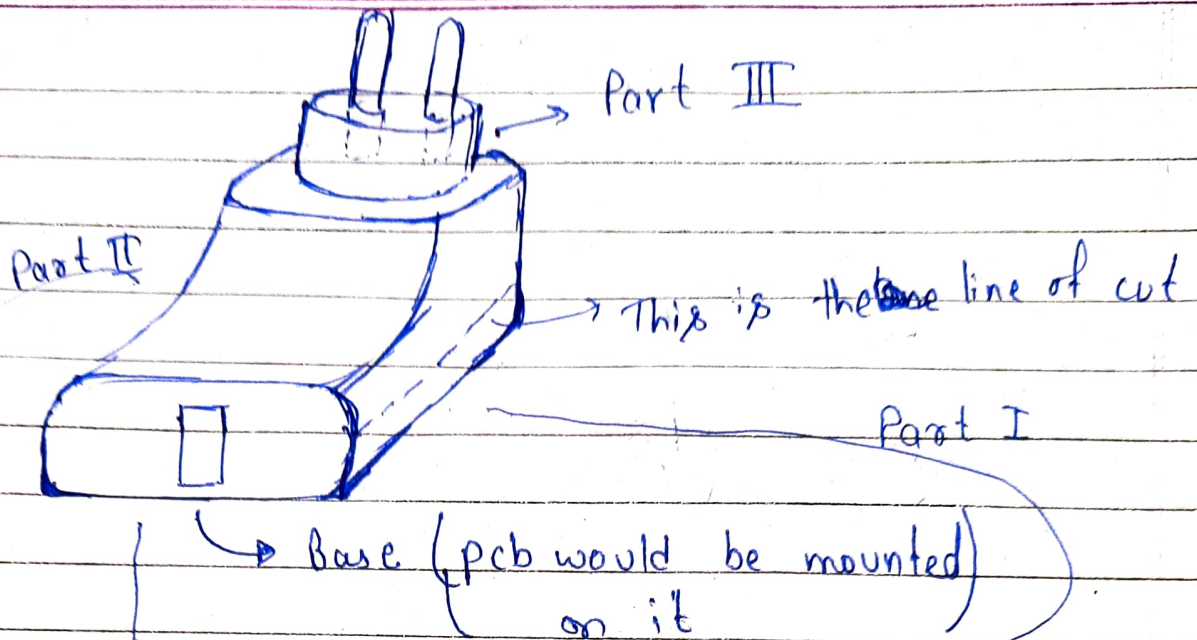 Part III
Part II
This is the line of cut
Part I
Base (pcb would be mounted)
on it